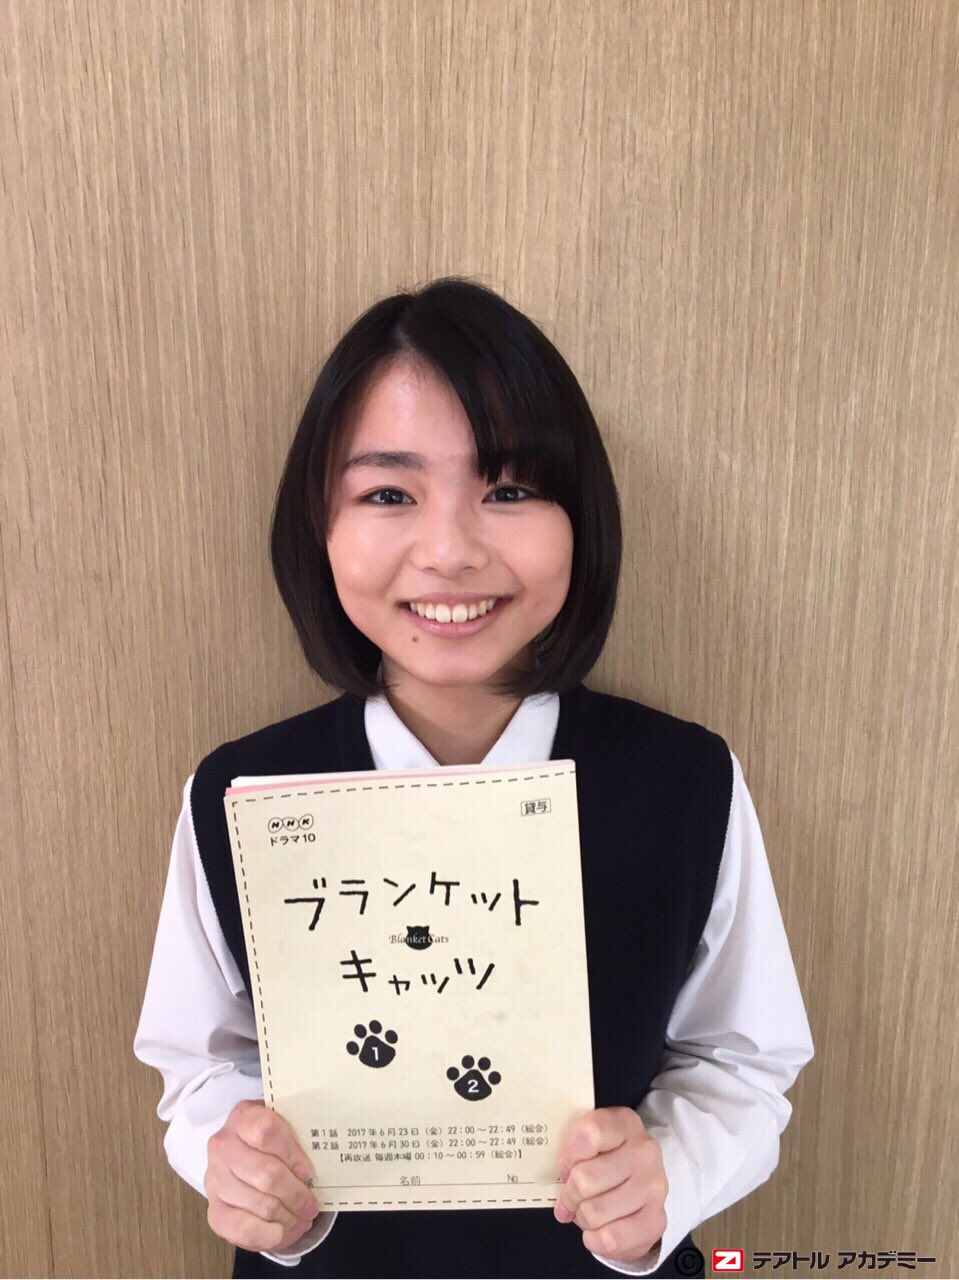 NHK
ドラマ10
貸与
ブランケット
Blanket Cats
キャッツ
1
2
第1話 2017年6月23日（金）22：00～22：49（総合）
第2話 2017年6月30日（金）22：00～22：49（総合）
【再放送 毎週木曜 00：10～00：59（総合）】
名前 No
© テアトル アカデミー